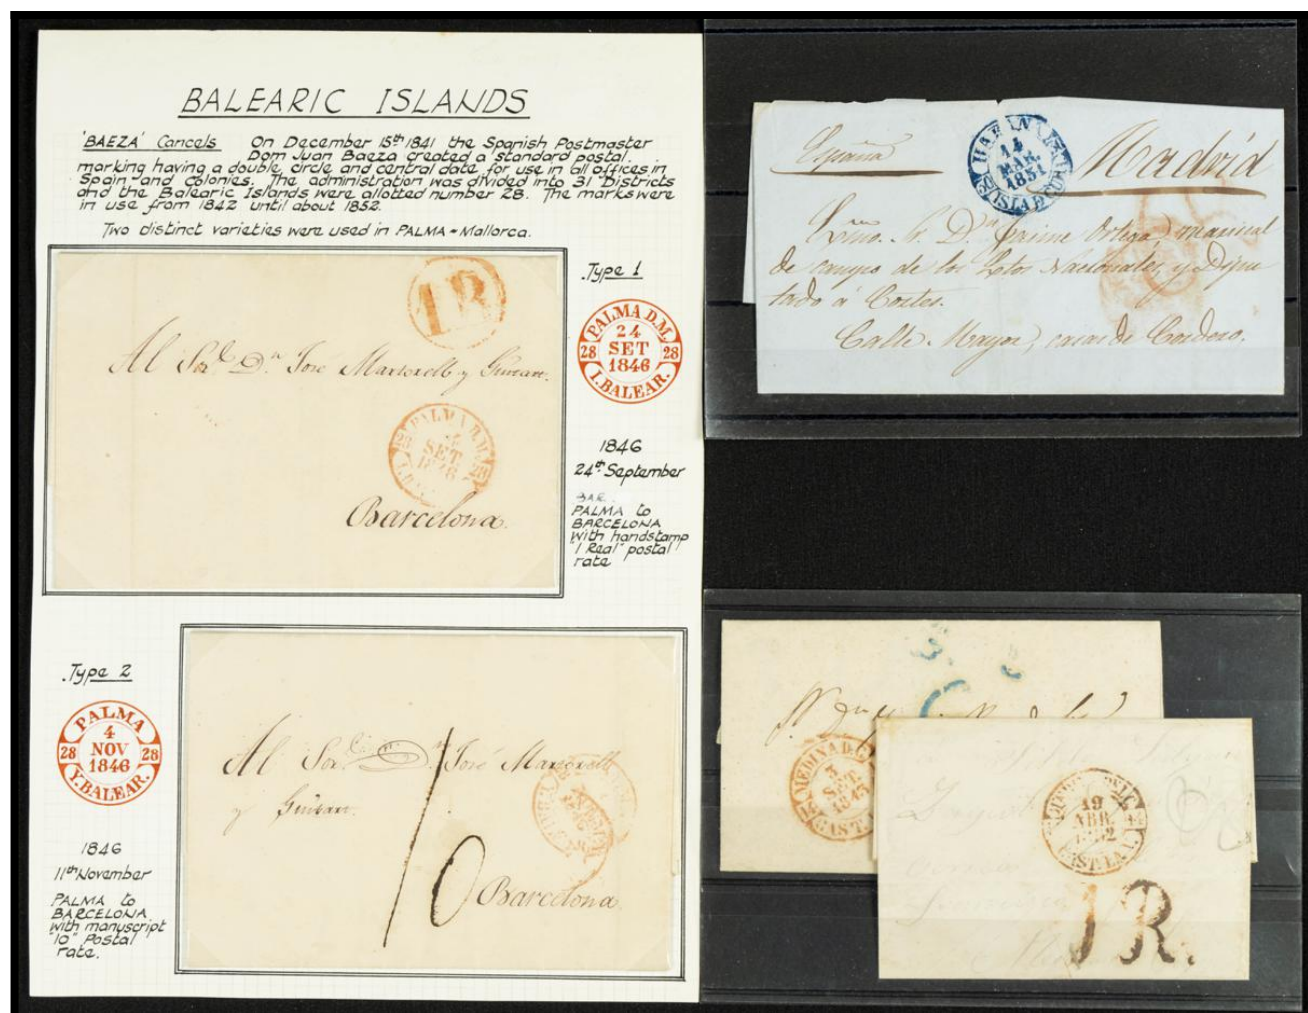 BALEARIC ISLANDS
'BAEZA' Cancels On December 15th 1841 the Spanish Postmaster
Dom Juan Baeza created a standard postal
marking having a double circle and central date for use in all offices in
Spain and colonies. The administration was divided into 31 Districts
and the Balearic Islands were allotted number 28. The marks were
in use from 1842 until about 1852.
Two distinct varieties were used in PALMA - Mallorca.
1R
Al Sor. Dn. José Martorell y
PALMA D.M.
28 SET 28
1846
Barcelona.
Type 1
PALMA D.M.
24
28 SET 28
1846
I.BALEAR.
1846
24th September
BAR.
PALMA to
BARCELONA
with handstamp
"1 Real" postal
rate
Type 2
PALMA
4
28 NOV 28
1846
Y.BALEAR.
1846
11th November
PALMA to
BARCELONA
with manuscript
"10" Postal
rate.
Al Sor. Dn. José Martorell
y
10
Barcelona
España
HABANA
14
MAR.
1851
ISLA D CUBA
Madrid
Exmo. Sr. Dn. Jaime Ortega, mariscal
de campo de los Nacionales, y Dipu
tado á Cortes.
Calle Mayor, casas de Cordero.
MEDINA D.
3
SET.
1845
CAST.LA
19
ABR.
CAST.LA V.
1R.